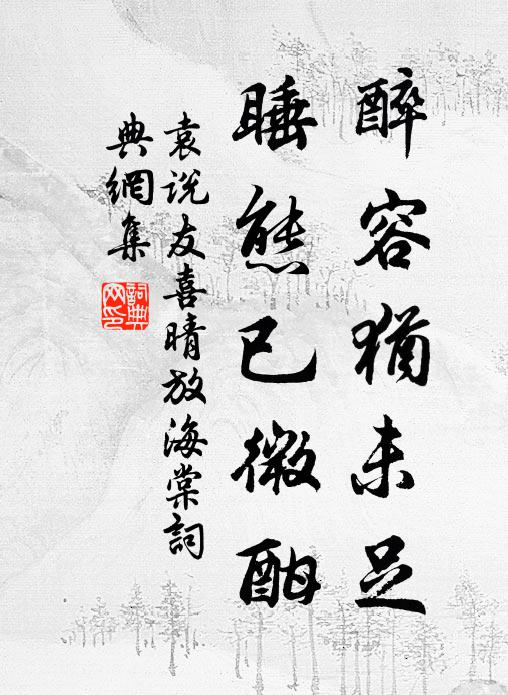 醉容猶未足
睡態已微酣
袁說友喜晴放海棠詞
典網集
詞典網印